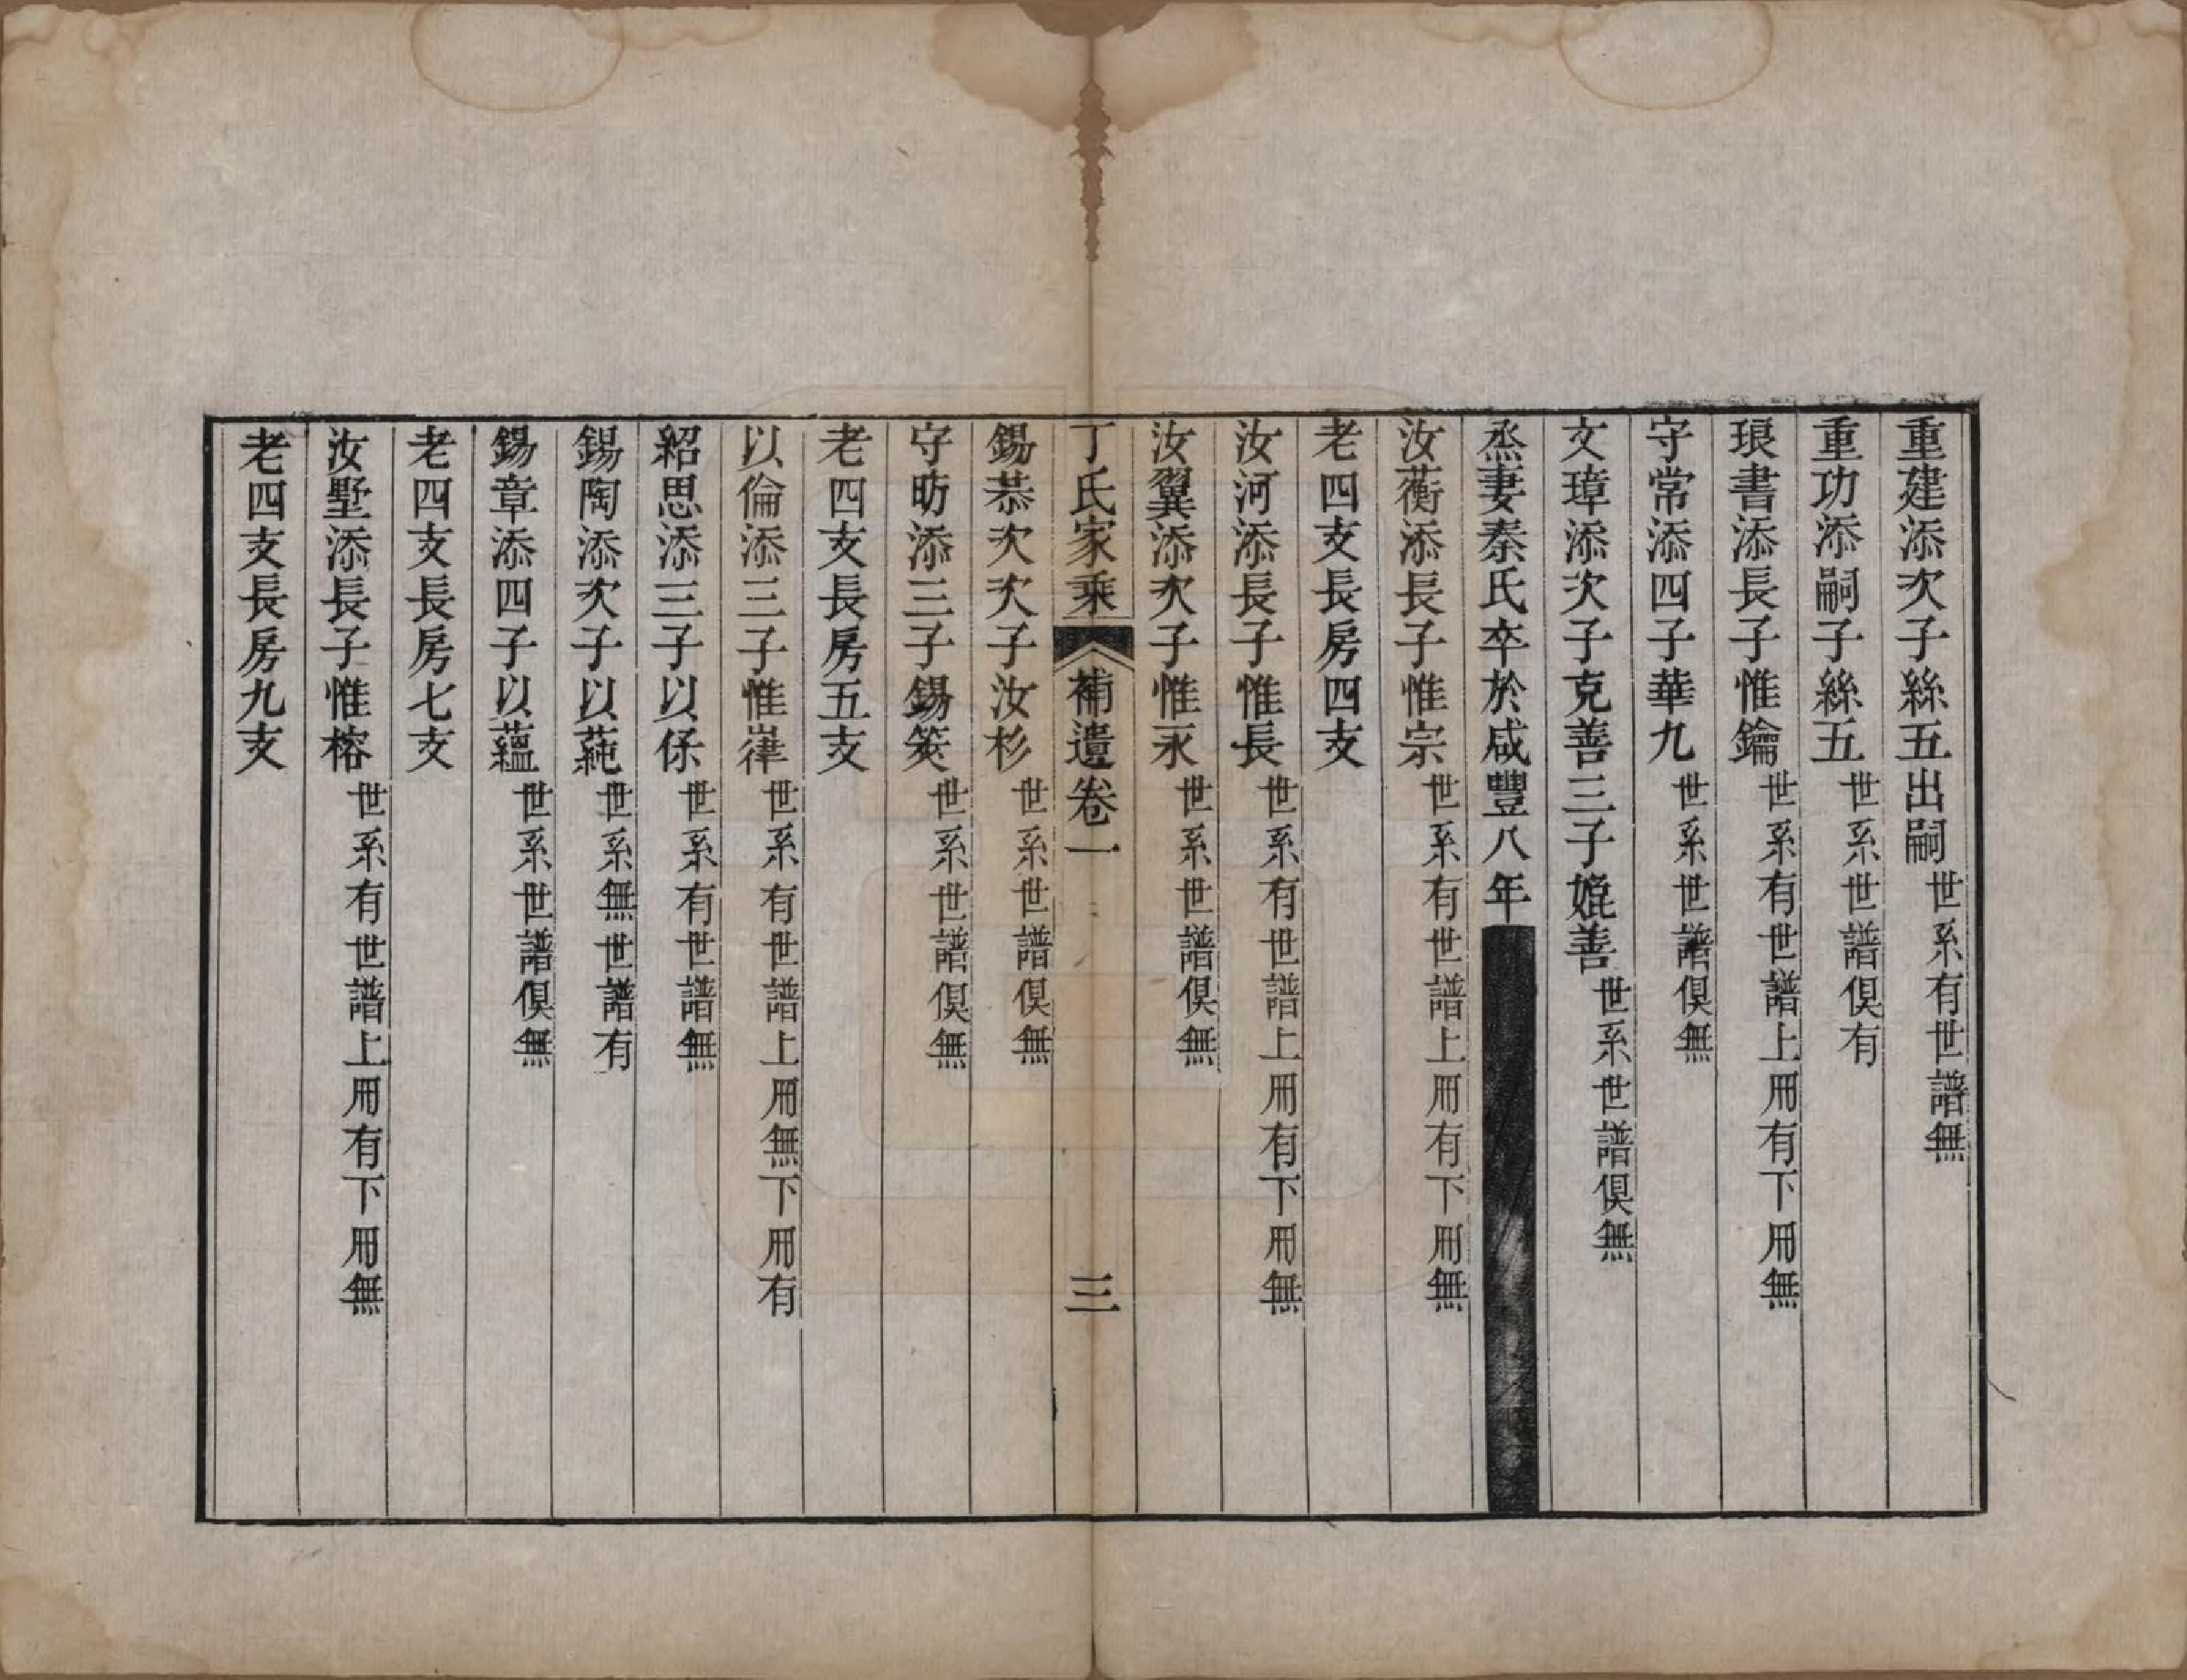 重建添次子絲五出嗣世系有世譜無
重功添嗣子絲五世系世譜俱有
琅書添長子惟鑰世系有世譜上冊有下冊無
守常添四子華九世系世譜俱無
文璋添次子克善三子嬔善世系世譜俱無
烝妻秦氏卒於咸豐八年
汝蘅添長子惟宗世系有世譜上冊有下冊無
老四支長房四支
汝河添長子惟長世系有世譜上冊有下冊無
汝翼添次子惟永世系世譜俱無
丁氏家乘 補遺卷一 三
錫恭次次子汝杉世系世譜俱無
守昉添三子錫筴世系世譜俱無
老四支長房五支
以倫添三子惟嵂世系有世譜上冊無下冊有
紹思添三子以係世系有世譜無
錫陶添次子以蒓世系無世譜有
錫章添四子以蘊世系世譜俱無
老四支長房七支
汝墅添長子惟榕世系有世譜上冊有下冊無
老四支長房九支